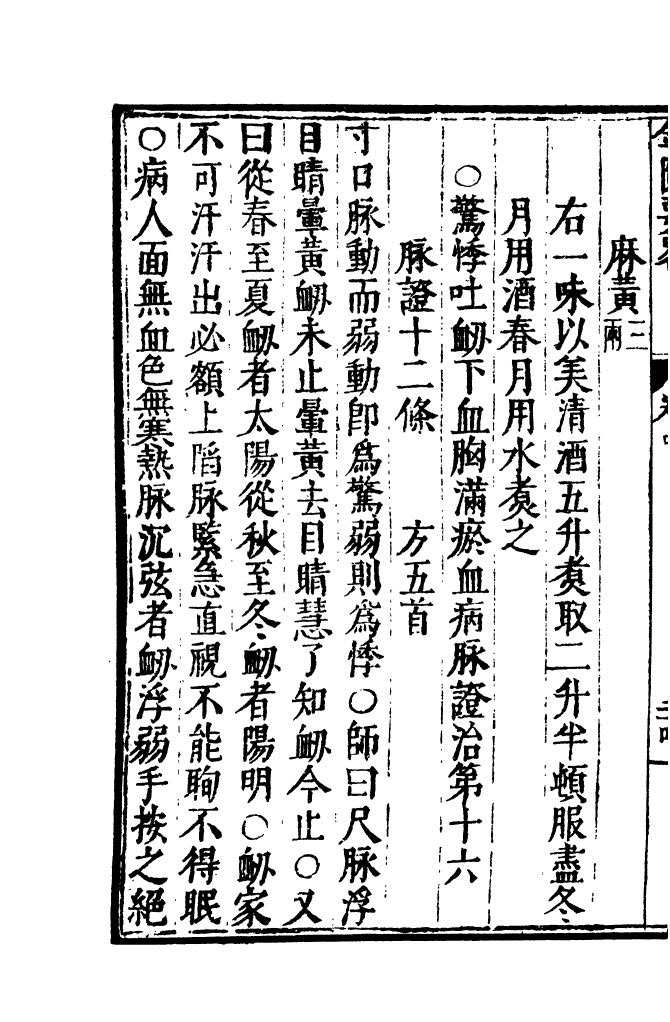 麻黃三兩
右一味以美清酒五升煑取二升半頓服盡冬
月用酒春月用水煑之
○驚悸吐衂下血胸滿瘀血病脉證治第十六
脉證十二條　方五首
寸口脉動而弱動即爲驚弱則爲悸○師曰尺脉浮
目睛暈黃衂未止暈黃去目睛慧了知衂今止○又
曰從春至夏衂者太陽從秋至冬衂者陽明○衂家
不可汗汗出必額上陷脉緊急直視不能眴不得眠
○病人面無血色無寒熱脉沉弦者衂浮弱手按之絕